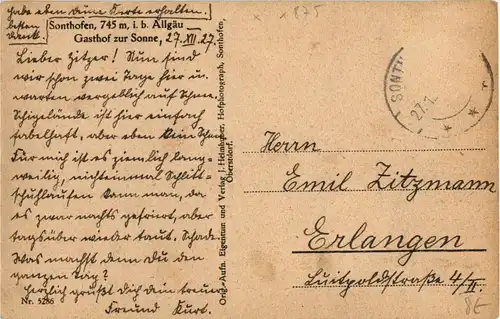 Habe eben deine Karte erhalten.
besten
Dank.
Sonthofen, 745 m, i. b. Allgäu
Gasthof zur Sonne, 27.XII.27
Lieber Zitzer! Nun sind
wir schon zwei Tage hier u.
warten vergeblich auf Schnee.
Schigelände ist hier einfach
fabelhaft, aber eben kein Schnee
Für mich ist es ziemlich lang-
weilig, nichteinmal Schlitt-
schuhlaufen kann man, da
es zwar nachts gefriert, aber
tagsüber wieder taut. Schade.
Was machst denn Du den
ganzen Tag?
Herzlich grüßt Dich dein treuer
Freund Kurt.
Nr. 5286
Orig.-Aufn. Eigentum und Verlag J. Heimhuber, Hofphotograph, Sonthofen,
Oberstdorf.
1875
SONTH
27.1
Herrn
Emil Zitzmann
Erlangen
Luitpoldstraße 4/II